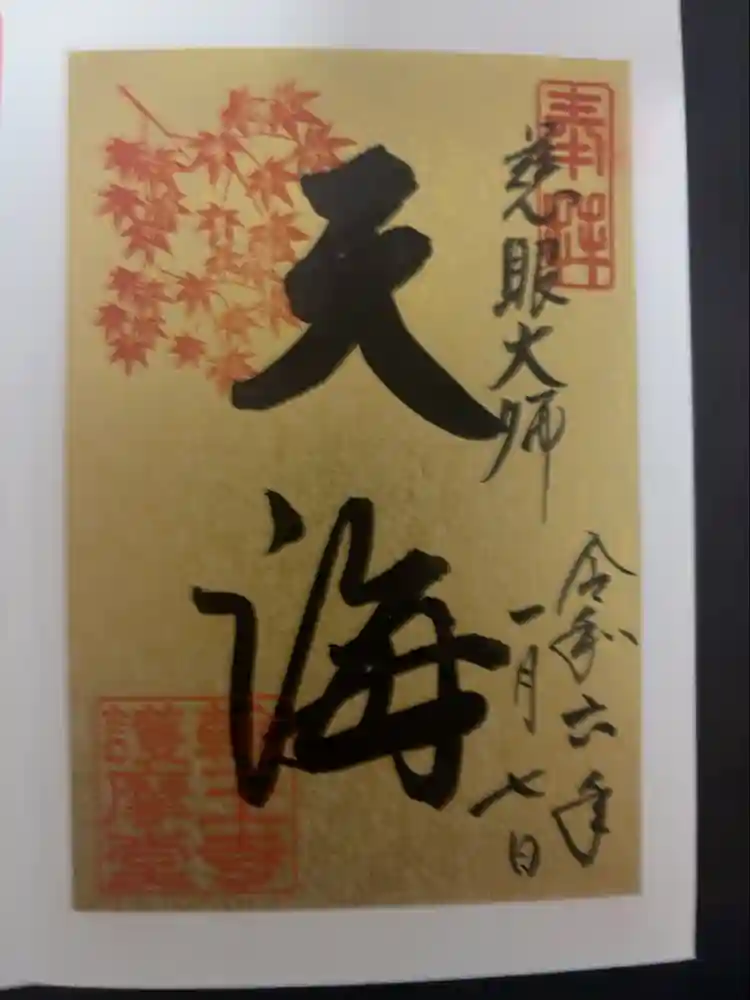 奉拝
慈眼大師
天海
令和六年
一月七日
護摩堂